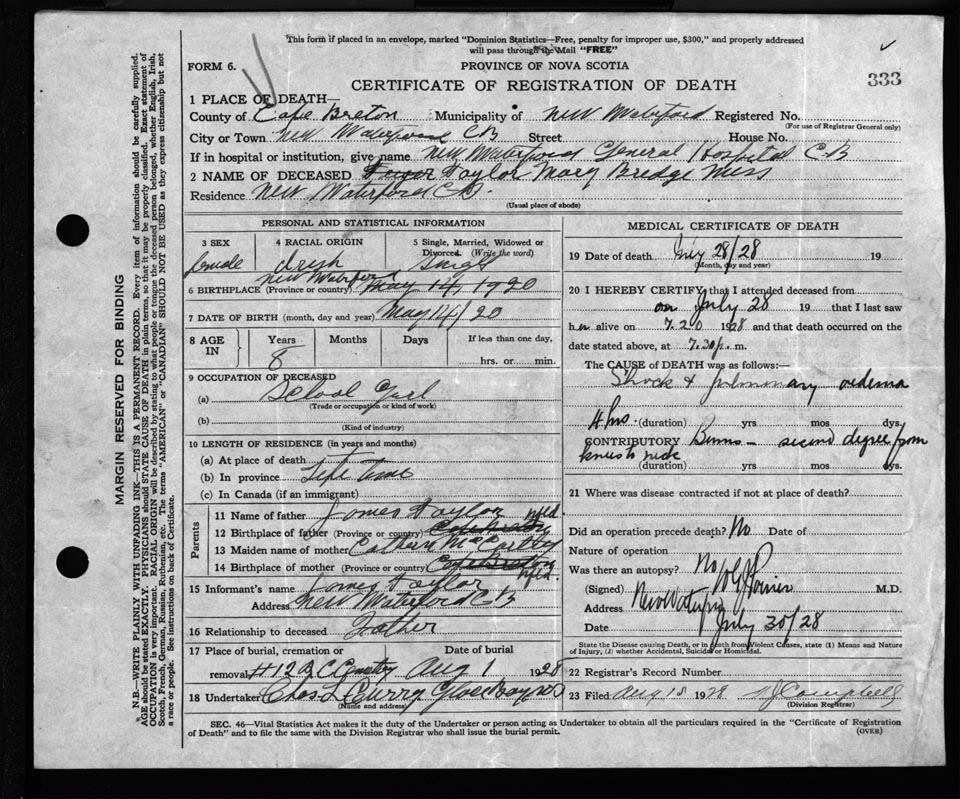 This form if placed in an envelope, marked "Dominion Statistics—Free, penalty for improper use, $300," and properly addressed
will pass through the Mail "FREE"
FORM 6.
PROVINCE OF NOVA SCOTIA
333
CERTIFICATE OF REGISTRATION OF DEATH
1 PLACE OF DEATH—
County of Cape Breton Municipality of New Waterford Registered No.
(For use of Registrar General only)
City or Town New Waterford CB Street House No.
If in hospital or institution, give name New Waterford General Hospital C.B
2 NAME OF DECEASED Taylor Mary Bredge Miss
Residence New Waterford CB
(Usual place of abode)
PERSONAL AND STATISTICAL INFORMATION
3 SEX 4 RACIAL ORIGIN 5 Single, Married, Widowed or Divorced. (Write the word)
female Irish Single
New Waterford
6 BIRTHPLACE (Province or country) May 14, 1920
7 DATE OF BIRTH (month, day and year) May 14/20
8 AGE IN Years Months Days If less than one day,
8 hrs. or min.
9 OCCUPATION OF DECEASED
(a) School Girl
(Trade or occupation or kind of work)
(b)
(Kind of industry)
10 LENGTH OF RESIDENCE (in years and months)
(a) At place of death
(b) In province Life Time
(c) In Canada (if an immigrant)
Parents
11 Name of father James Taylor
12 Birthplace of father (Province or country) Cape Breton Nfld.
13 Maiden name of mother McCarthy
14 Birthplace of mother (Province or country) Cape Breton Nfld.
15 Informant's name James Taylor
Address New Waterford CB
16 Relationship to deceased Father
17 Place of burial, cremation or Date of burial
removal #12 R C Cemetery Aug 1 1928
18 Undertaker Chas L Curry Glace Bay NS
(Name and address)
MEDICAL CERTIFICATE OF DEATH
19 Date of death July 28/28 19
(Month, day and year)
20 I HEREBY CERTIFY that I attended deceased from
on July 28 19 that I last saw
her alive on 7.20 1928 and that death occurred on the
date stated above, at 7.30 p. m.
The CAUSE of DEATH was as follows:—
Shock & pulmonary oedema
4 hrs. (duration) yrs mos dys.
CONTRIBUTORY Burns — second degree from
knees to neck
(duration) yrs mos dys.
21 Where was disease contracted if not at place of death?
Did an operation precede death? No Date of
Nature of operation
Was there an autopsy? No
(Signed) Poirier M.D.
Address New Waterford
Date July 30/28
State the Disease causing Death, or in death from Violent Causes, state (1) Means and Nature
of Injury, (2) whether Accidental, Suicidal or Homicidal.
22 Registrar's Record Number
23 Filed Aug 18 1928 Campbell
(Division Registrar)
SEC. 46—Vital Statistics Act makes it the duty of the Undertaker or person acting as Undertaker to obtain all the particulars required in the "Certificate of Registration
of Death" and to file the same with the Division Registrar who shall issue the burial permit.
(OVER)
MARGIN RESERVED FOR BINDING
N.B.—WRITE PLAINLY WITH UNFADING INK—THIS IS A PERMANENT RECORD. Every item of information should be carefully supplied.
AGE should be stated EXACTLY. PHYSICIANS should STATE CAUSE OF DEATH in plain terms, so that it may be properly classified. Exact statement of
OCCUPATION is very important. RACIAL ORIGIN will be described by stating to what people or tongue the deceased person belonged, whether English, Irish,
Scotch, French, German, Russian, Ruthenian, etc. The terms "AMERICAN" or "CANADIAN" SHOULD NOT BE USED as they express citizenship but not
a race or people. See instructions on back of Certificate.